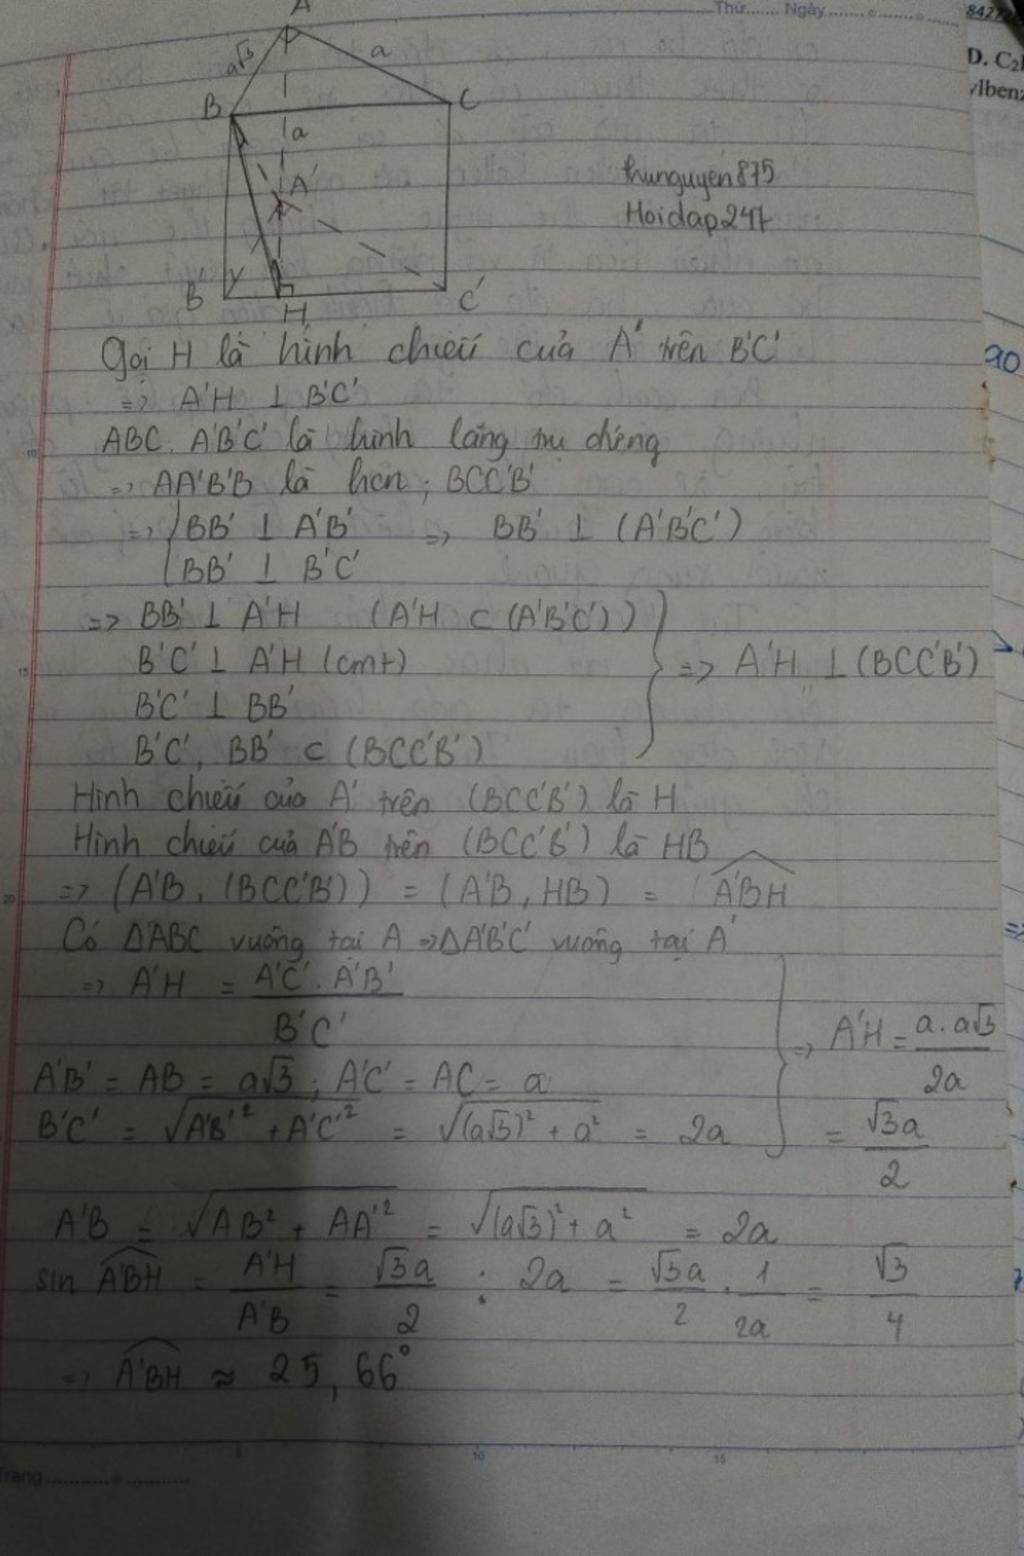 Thứ....... Ngày
8427
D. C₂
A
a√3
a
B
C
a
A'
thunguyen875
Hoidap247
B
H
C'
Gọi H là hình chiếu của A' trên B'C'
=> A'H ⊥ B'C'
ABC. A'B'C' là hình lăng trụ đứng
=> AA'B'B là hcn ; BCC'B'
=> { BB' ⊥ A'B' => BB' ⊥ (A'B'C')
BB' ⊥ B'C'
=> BB' ⊥ A'H (A'H ⊂ (A'B'C'))
B'C' ⊥ A'H (cmt) } => A'H ⊥ (BCC'B')
B'C' ⊥ BB'
B'C', BB' ⊂ (BCC'B')
Hình chiếu của A' trên (BCC'B') là H
Hình chiếu của A'B trên (BCC'B') là HB
=> (A'B, (BCC'B')) = (A'B, HB) = A'BH
Có ΔABC vuông tại A => ΔA'B'C' vuông tại A'
=> A'H = A'C' . A'B' / B'C'
A'B' = AB = a√3 ; A'C' = AC = a } => A'H = a. a√3 / 2a
B'C' = √(A'B'² + A'C'²) = √((a√3)² + a²) = 2a = √3a / 2
A'B = √(AB² + AA'²) = √((a√3)² + a²) = 2a
sin A'BH = A'H / A'B = √3a / 2 : 2a = √3a / 2 . 1 / 2a = √3 / 4
=> A'BH ≈ 25,66°
Trang